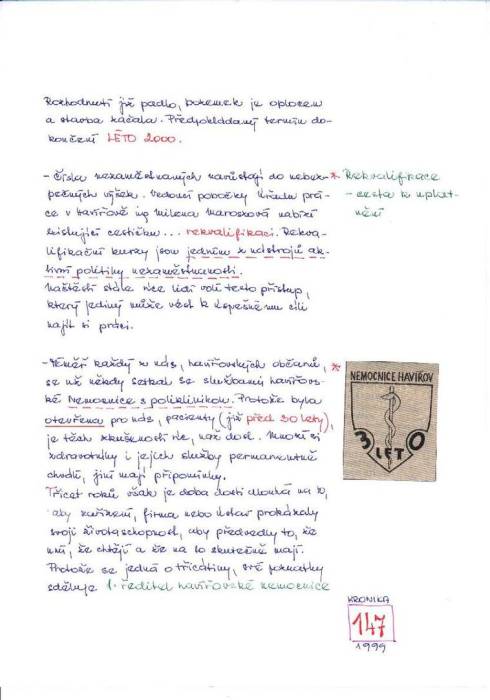 Rozhodnutí již padlo, pozemek je oplocen
a stavba začala. Předpokládaný termín do-
končení LÉTO 2000.
- Čísla nezaměstnaných narůstají do nebez-
pečných výšek. Vedoucí pobočky Úřadu prá-
ce v Havířově ing Milena Maroszová nabízí
existující cestičku... rekvalifikaci. Rekva-
lifikační kursy jsou jedním z nástrojů ak-
tivní politiky nezaměstnanosti.
Naštěstí stále více lidí volí tento přístup,
který jediný může vést k úspěšnému cíli
najít si práci.
* Rekvalifikace
- cesta k uplat-
nění
- Téměř každý z nás, havířovských občanů,
se už někdy setkal se službami havířov-
ské Nemocnice s poliklinikou. Protože byla
otevřena pro nás, pacienty (již před 30 lety),
je těch zkušeností víc, než dost. Mnozí si
zdravotníky i jejich služby permanentně
chválí, jiní mají připomínky.
Třicet roků však je doba dosti dlouhá na to,
aby zařízení, firma nebo ústav prokázaly
svoji životaschopnost, aby předvedly to, že
umí, že chtějí a že na to skutečně mají.
Protože se jedná o třicátiny, své poznatky
sděluje 1. ředitel havířovské nemocnice
*
NEMOCNICE HAVÍŘOV
30
LET
KRONIKA
147
1999